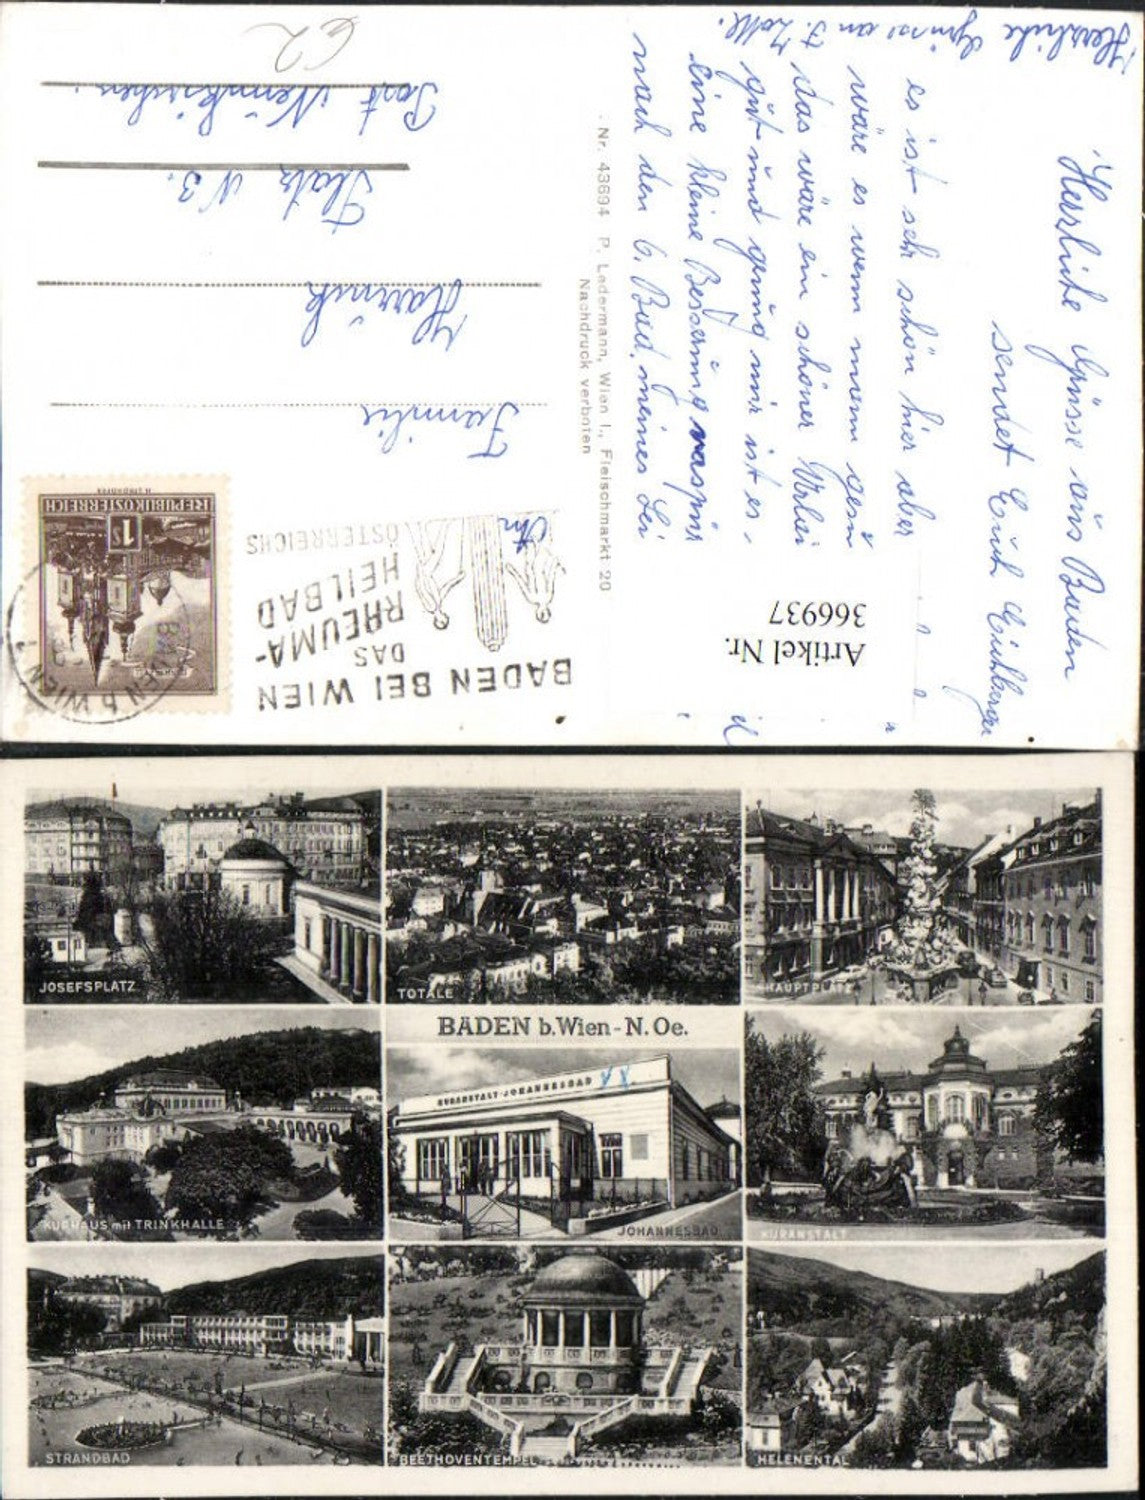 Herzliche Grüsse aus Baden
sendet Euch Eichberger
es ist sehr schön hier aber
wäre es wenn mann gern
das wäre ein schöner Urlau
gut und genug mir ist es,
eine kleine Besserung
nach den 6. Bad, meines
Herzliche Grüsse an
Nr. 43694 P. Ledermann, Wien I., Fleischmarkt 20
Nachdruck verboten
BADEN BEI WIEN
DAS
RHEUMA-
HEILBAD
ÖSTERREICHS
BADEN b. WIEN
REPUBLIK ÖSTERREICH
1 S
An
Familie
Post Neunkirchen.
62
Artikel Nr.
366937
JOSEFSPLATZ
TOTALE
HAUPTPLATZ
BADEN b. Wien - N. Oe.
KURHAUS mit TRINKHALLE
KURANSTALT-JOHANNESBAD
JOHANNESBAD
KURANSTALT
STRANDBAD
BEETHOVENTEMPEL
HELENENTAL